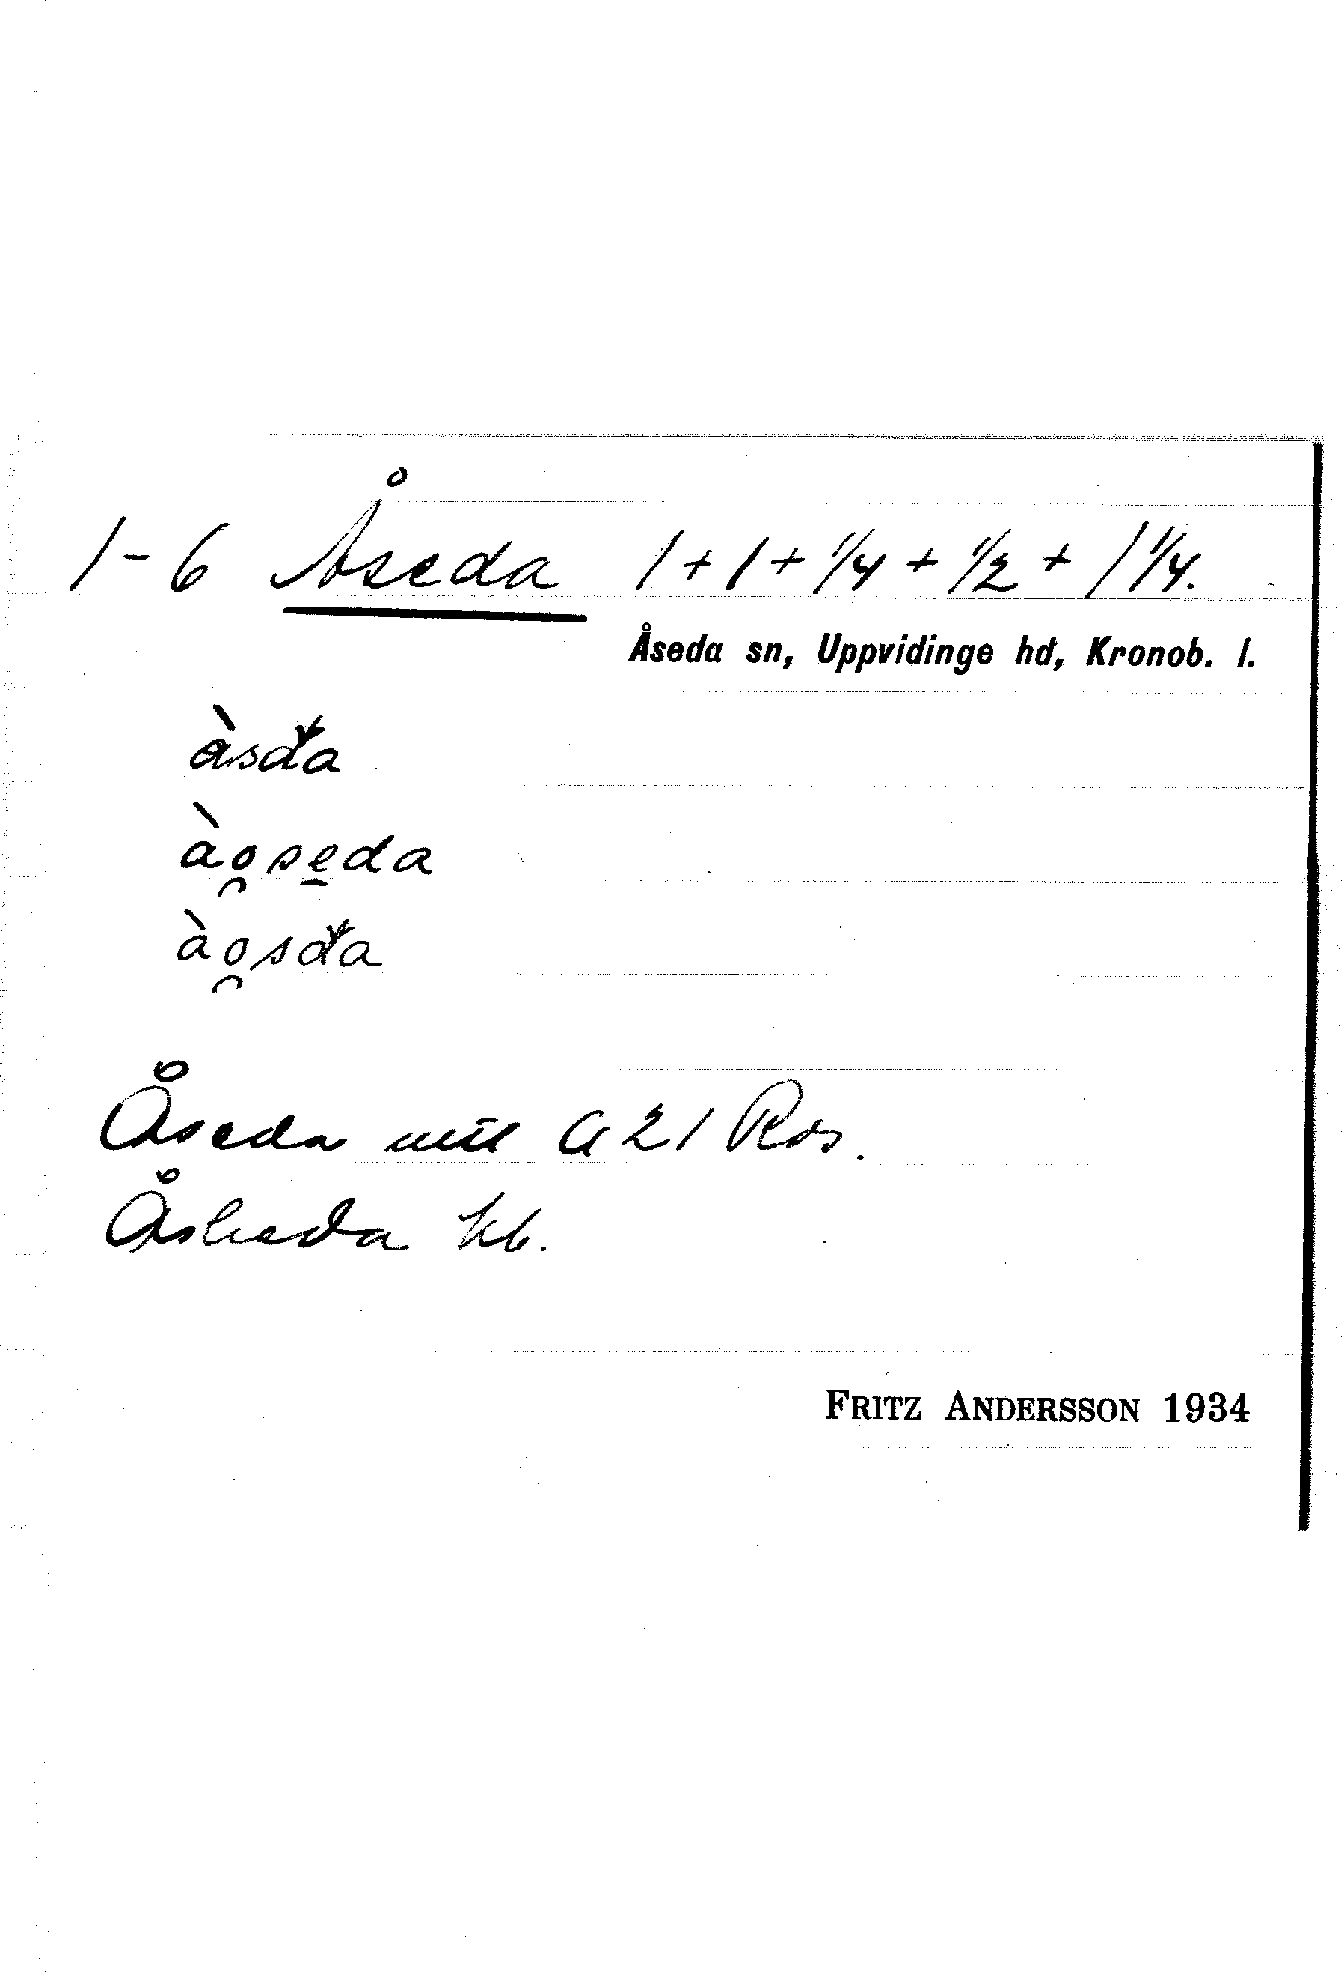 1-6 Åseda 1+1+1/4+1/2+1 1/4.
Åseda sn, Uppvidinge hd, Kronob. l.
àsda
àoseda
àosda
Åseda G 21 Ros.
Åsheda kb.
FRITZ ANDERSSON 1934